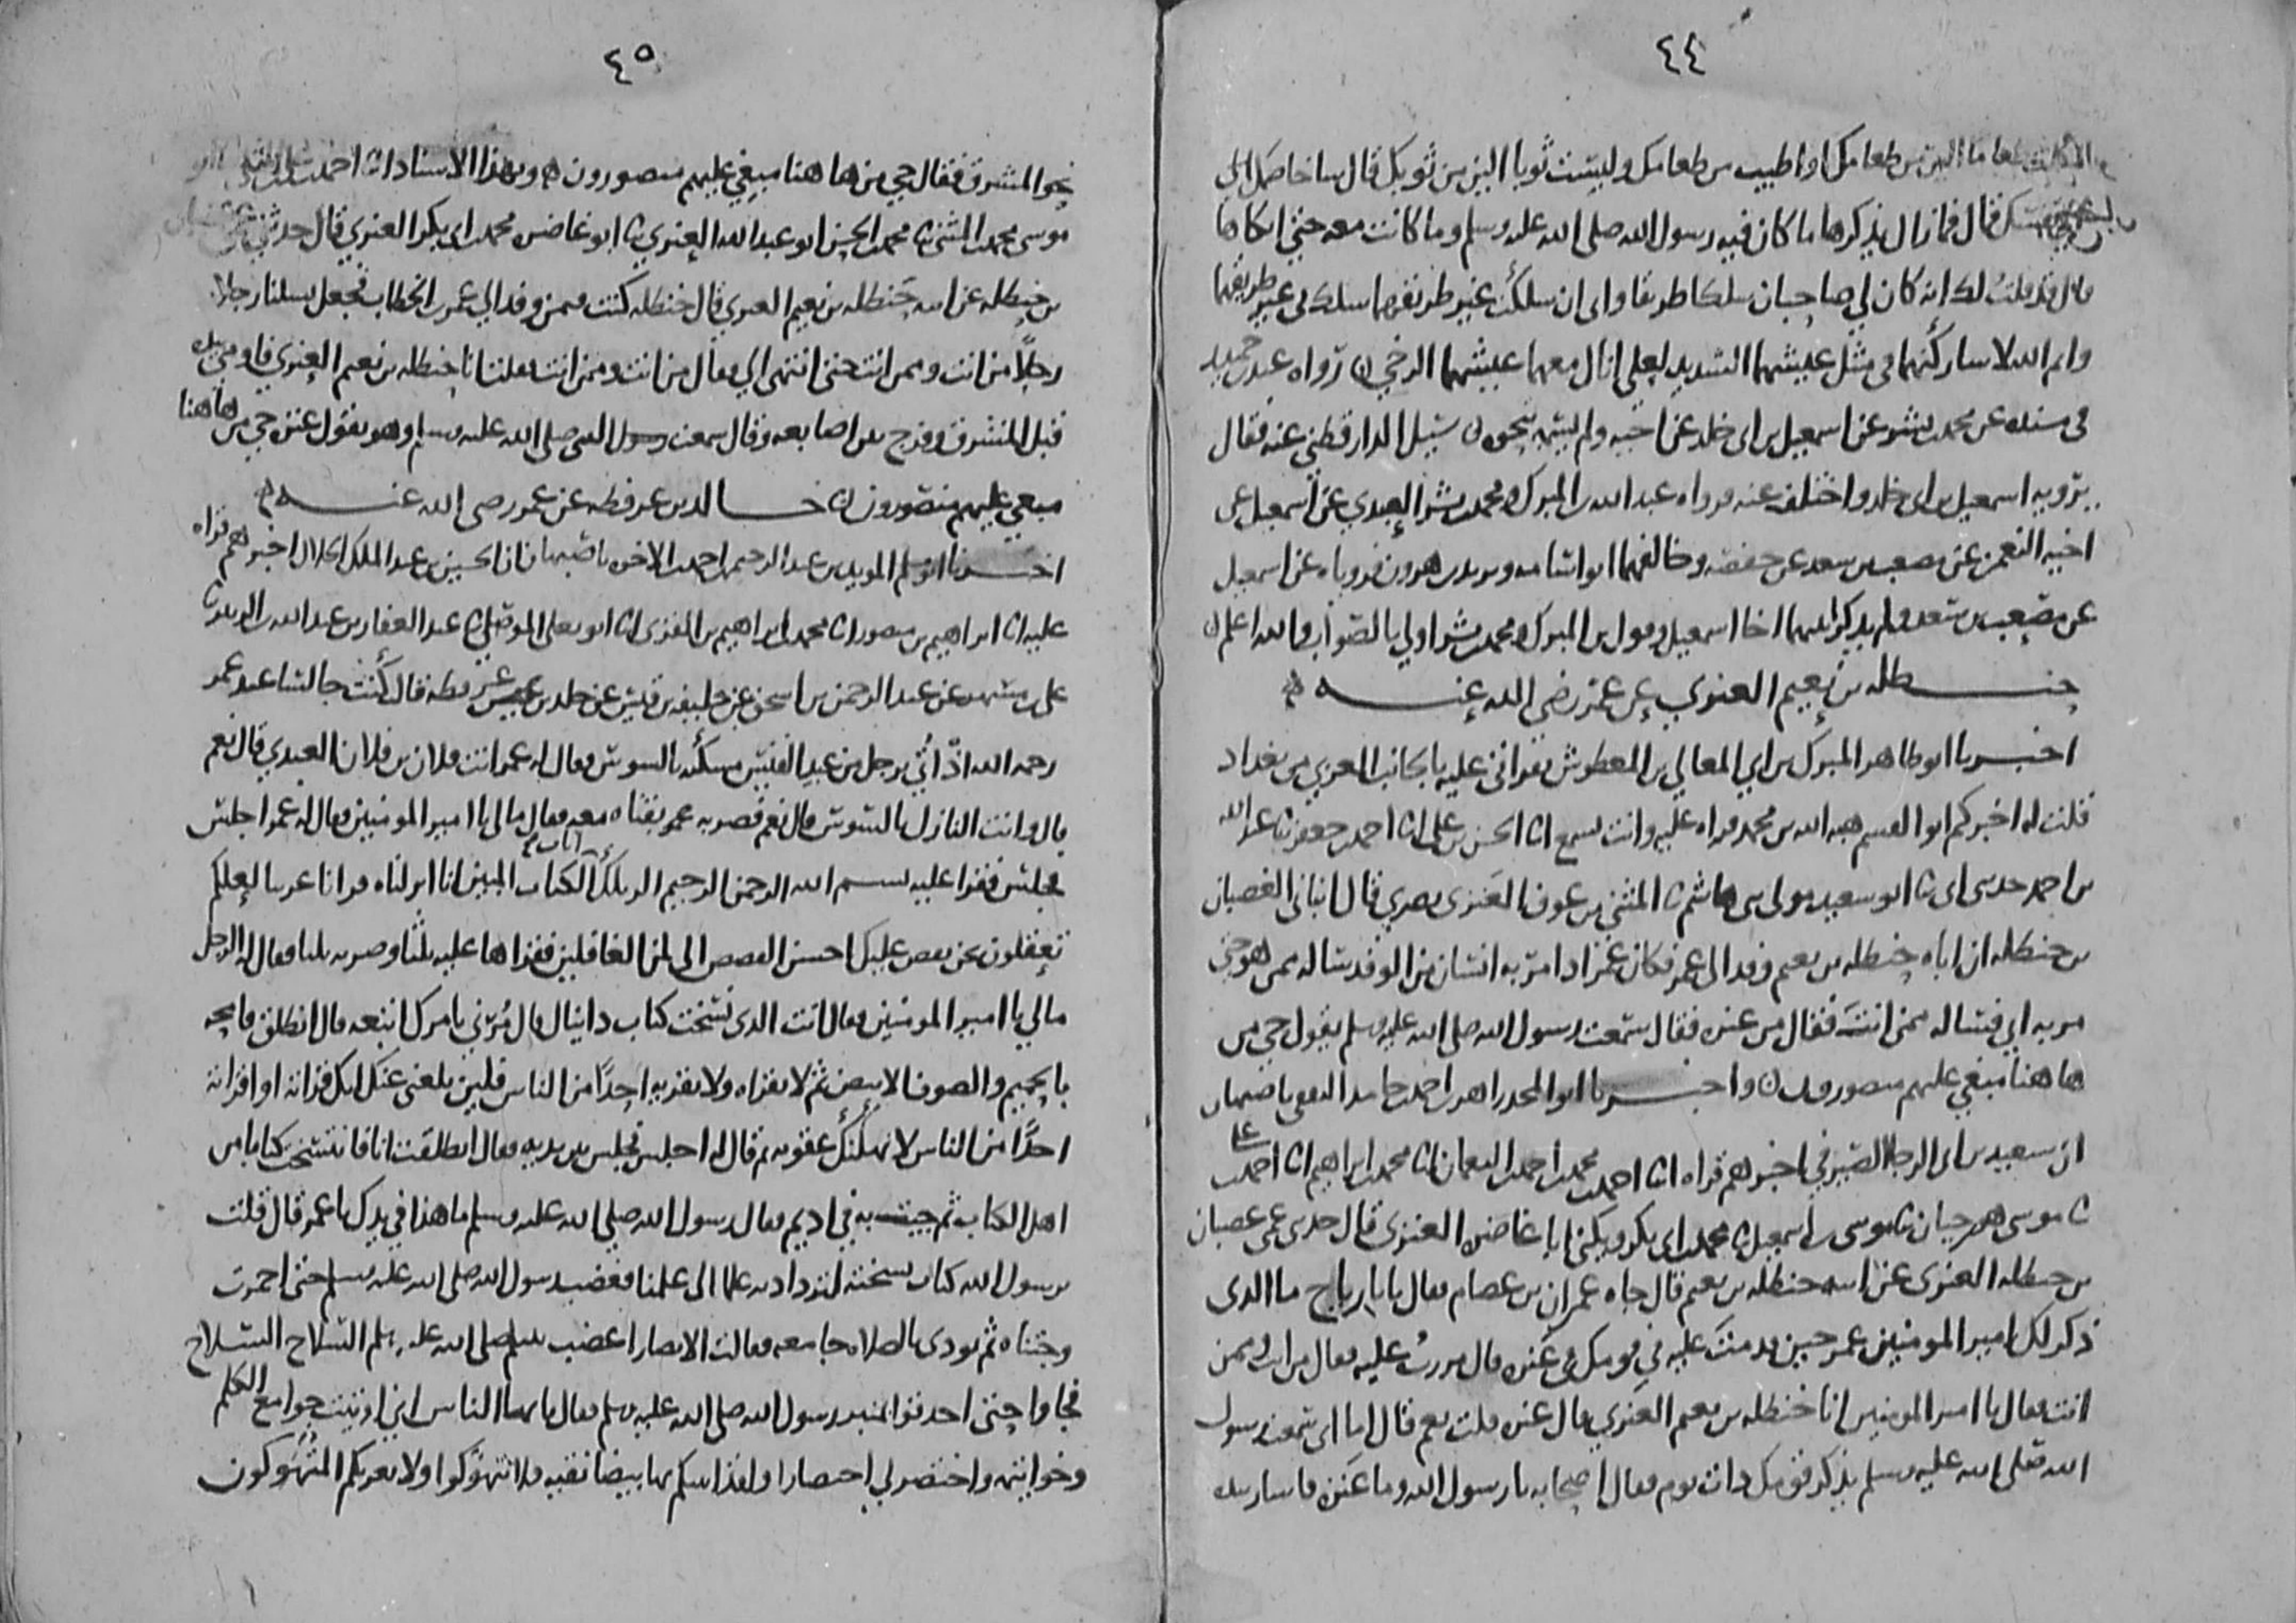 ٤٤
طعاما الين من طعامك او اطيب من طعامك ولبست ثوبا الين من ثوبك قال ساخاصمك الى
نفسك قال فما زال يذكرها ما كان فيه رسول الله صلى الله عليه وسلم وما كانت معه حتى ابكاها
قال قد قلت لك انه كان لي صاحبان سلكا طريقا واى ان سلكت غير طريقهما سلك بى غير طريقهما
وايم الله لاشاركنهما فى مثل عيشهما الشديد لعلى انال معهما عيشهما الرخي رواه عبد بن حميد
فى مسنده عن محمد بن بشر عن اسمعيل بن ابى خلد عن اخيه ولم يسمه بنحوه سئل الدارقطني عنه فقال
يرويه اسمعيل بن ابى خلد واختلف عنه فرواه عبد الله بن المبرك ومحمد بن بشر العبدي عن اسمعيل عن
اخيه النعمن عن مصعب بن سعد عن حفصه وخالفهما ابو اسامه ويزيد بن هرون فروياه عن اسمعيل
عن مصعب بن سعد ولم يذكرا بينهما اخا اسمعيل وقول ابن المبرك ومحمد بن بشر اولى بالصواب والله اعلم
حنظله بن نعيم العنزي عن عمر رضي الله عنه
اخبرنا ابو طاهر المبرك بن ابي المعالي بن المعطوش بقراتي عليه بالجانب الغربي من بغداد
قلت له اخبركم ابو القسم هبه الله بن محمد قراه عليه وانت تسمع انا الحسن بن على انا احمد بن جعفر نا عبد الله
بن احمد حدثنى ابى نا ابو سعيد مولى بنى هاشم نا المثنى بن عوف العنزى بصري قال انبانى الغضبان
بن حنظله ان اباه حنظله بن نعيم وفد الى عمر فكان عمر اذا مر به انسان من الوفد ساله ممن هو حتى
مر به ابي فساله ممن انت فقال من عنزه فقال سمعت رسول الله صلى الله عليه وسلم يقول حي من
ها هنا مبغي عليهم منصورون واخبرنا ابو الفخر اسعد بن احمد بن حامد الثقفى باصبهان
ان سعيد بن ابى الرجا الصيرفي اخبرهم قراه انا احمد بن محمد بن احمد بن النعمان انا محمد بن ابراهيم انا احمد بن على
نا موسى هو بن حيان نا موسى بن اسمعيل نا محمد بن ابى بكر ويكنى ابا غاضره العنزى قال حدثنى عمى غضبان
بن حنظله العنزى عن ابيه حنظله بن نعيم قال جاه عمران بن عصام فقال يا با رباح ما الذى
ذكر لك امير المومنين عمر حين قدمت عليه في قومك فى عنزه قال مررت عليه فقال من انت وممن
انت فقال يا امير المومنين انا حنظله بن نعيم العنزي قال عنزه قلت نعم قال اما انى سمعت رسول
الله صلى الله عليه وسلم يذكر قومك ذات يوم فقال اصحابه يا رسول الله وما عنزه فاشار بيده
٤٥
نحو المشرق فقال حي من ها هنا مبغي عليهم منصورون وبهذا الاسناد انا احمد بن على
موسى محمد بن المثنى نا محمد بن الحسن ابو عبد الله العنزي نا ابو غاضره محمد بن ابى بكر العنزي قال حدثني غضبان
بن حنظله عن ابيه حنظله بن نعيم العنزي قال حنظله كنت فيمن وفد الى عمر بن الخطاب فجعل يسلنا رجلا
رجلا من انت وممن انت حتى انتهى الى فقال من انت وممن انت فقلت انا حنظله بن نعيم العنزي فاومى بيده
قبل المشرق وفرج بين اصابعه وقال سمعت رسول الله صلى الله عليه وسلم وهو يقول عنزه حي من ها هنا
مبغي عليهم منصورون خالد بن عرفطه عن عمر رضى الله عنه
اخبرنا ابو مسلم المويد بن عبد الرحيم بن احمد بن الاخوه باصبهان ان الحسين بن عبد الملك الخلال اخبرهم قراه
عليه انا ابراهيم بن منصور انا محمد بن ابراهيم بن المقرى انا ابو يعلى الموصلي نا عبد الغفار بن عبد الله بن الزبير نا
على بن مسهر عن عبد الرحمن بن اسحق عن خليفه بن قيس عن خلد بن عرفطه قال كنت جالسا عند عمر
رحمه الله اذ اتي برجل من عبد القيس مسكنه بالسوس فقال له عمر انت فلان بن فلان العبدي قال نعم
قال وانت النازل بالسوس قال نعم فضربه عمر بقناه معه فقال مالى يا امير المومنين فقال له عمر اجلس
فجلس فقرا عليه بسم الله الرحمن الرحيم الر تلك ايات الكتاب المبين انا انزلناه قرانا عربيا لعلكم
تعقلون نحن نقص عليك احسن القصص الى لمن الغافلين فقراها عليه ثلثا وضربه ثلثا فقال له الرجل
مالي يا امير المومنين فقال انت الذى نسخت كتاب دانيال قال مرني بامرك اتبعه قال انطلق فامحه
بالحميم والصوف الابيض ثم لا تقراه ولا تقريه احدا من الناس فلين بلغنى عنك انك قراته او اقراته
احدا من الناس لانهكنك عقوبه ثم قال له اجلس فجلس بين يديه فقال انطلقت انا فانتسخت كتابا من
اهل الكتاب ثم جيت به في اديم فقال رسول الله صلى الله عليه وسلم ما هذا في يدك يا عمر قال قلت
يرسول الله كتاب نسخته لنزداد به علما الى علمنا فغضب رسول الله صلى الله عليه وسلم حتى احمرت
وجنتاه ثم نودى بالصلاه جامعه فقالت الانصار اغضب نبيكم صلى الله عليه وسلم السلاح السلاح
فجاوا حتى احدقوا بمنبر رسول الله صلى الله عليه وسلم فقال يا ايها الناس اني اوتيت جوامع الكلم
وخواتيمه واختصر لي اختصارا ولقد اتيتكم بها بيضا نقيه فلا تتهوكوا ولا يغرنكم المتهوكون